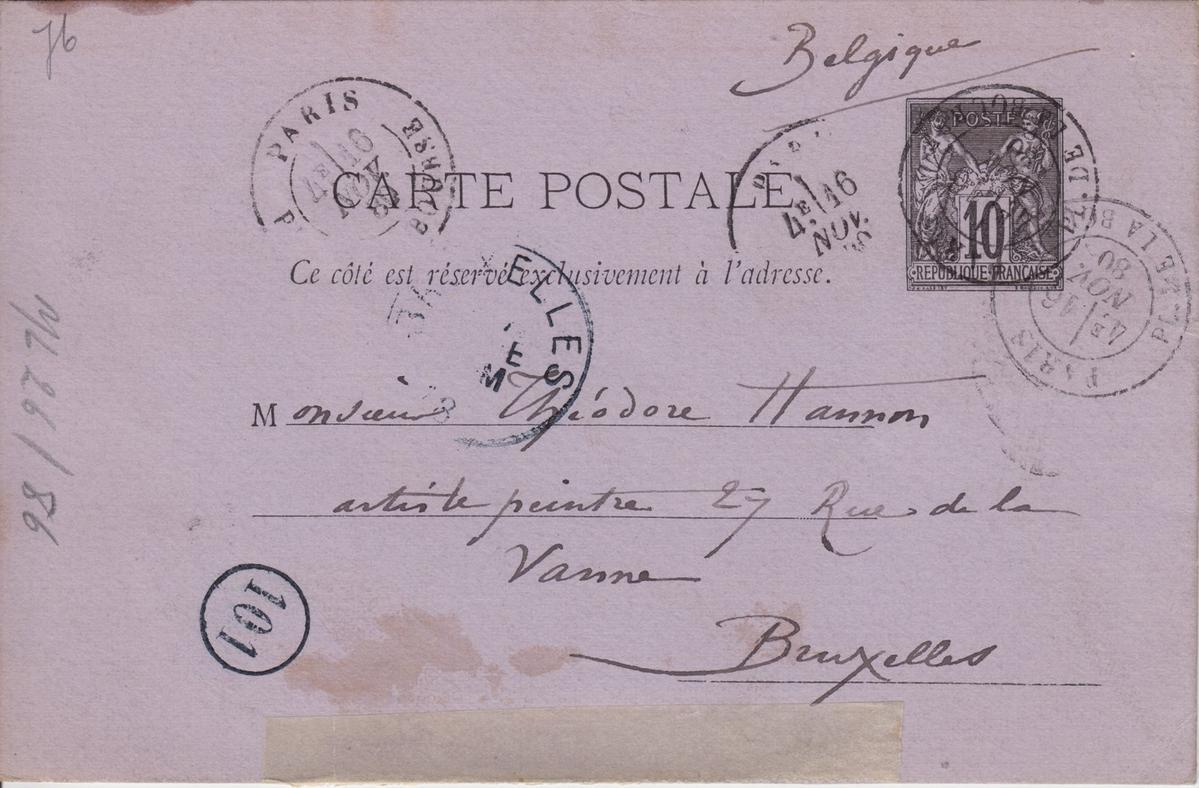 76
Belgique
PARIS
4E 16
NOV.
80
BOURSE
4E 16
NOV.
POSTE
10
REPUBLIQUE FRANÇAISE
PARIS
PL. DE LA B
4E 16
NOV.
80
CARTE POSTALE
Ce côté est réservé exclusivement à l'adresse.
ELLES
M
Monsieur Théodore Hannon
artiste peintre 27 Rue de la
Vanne
Bruxelles
101